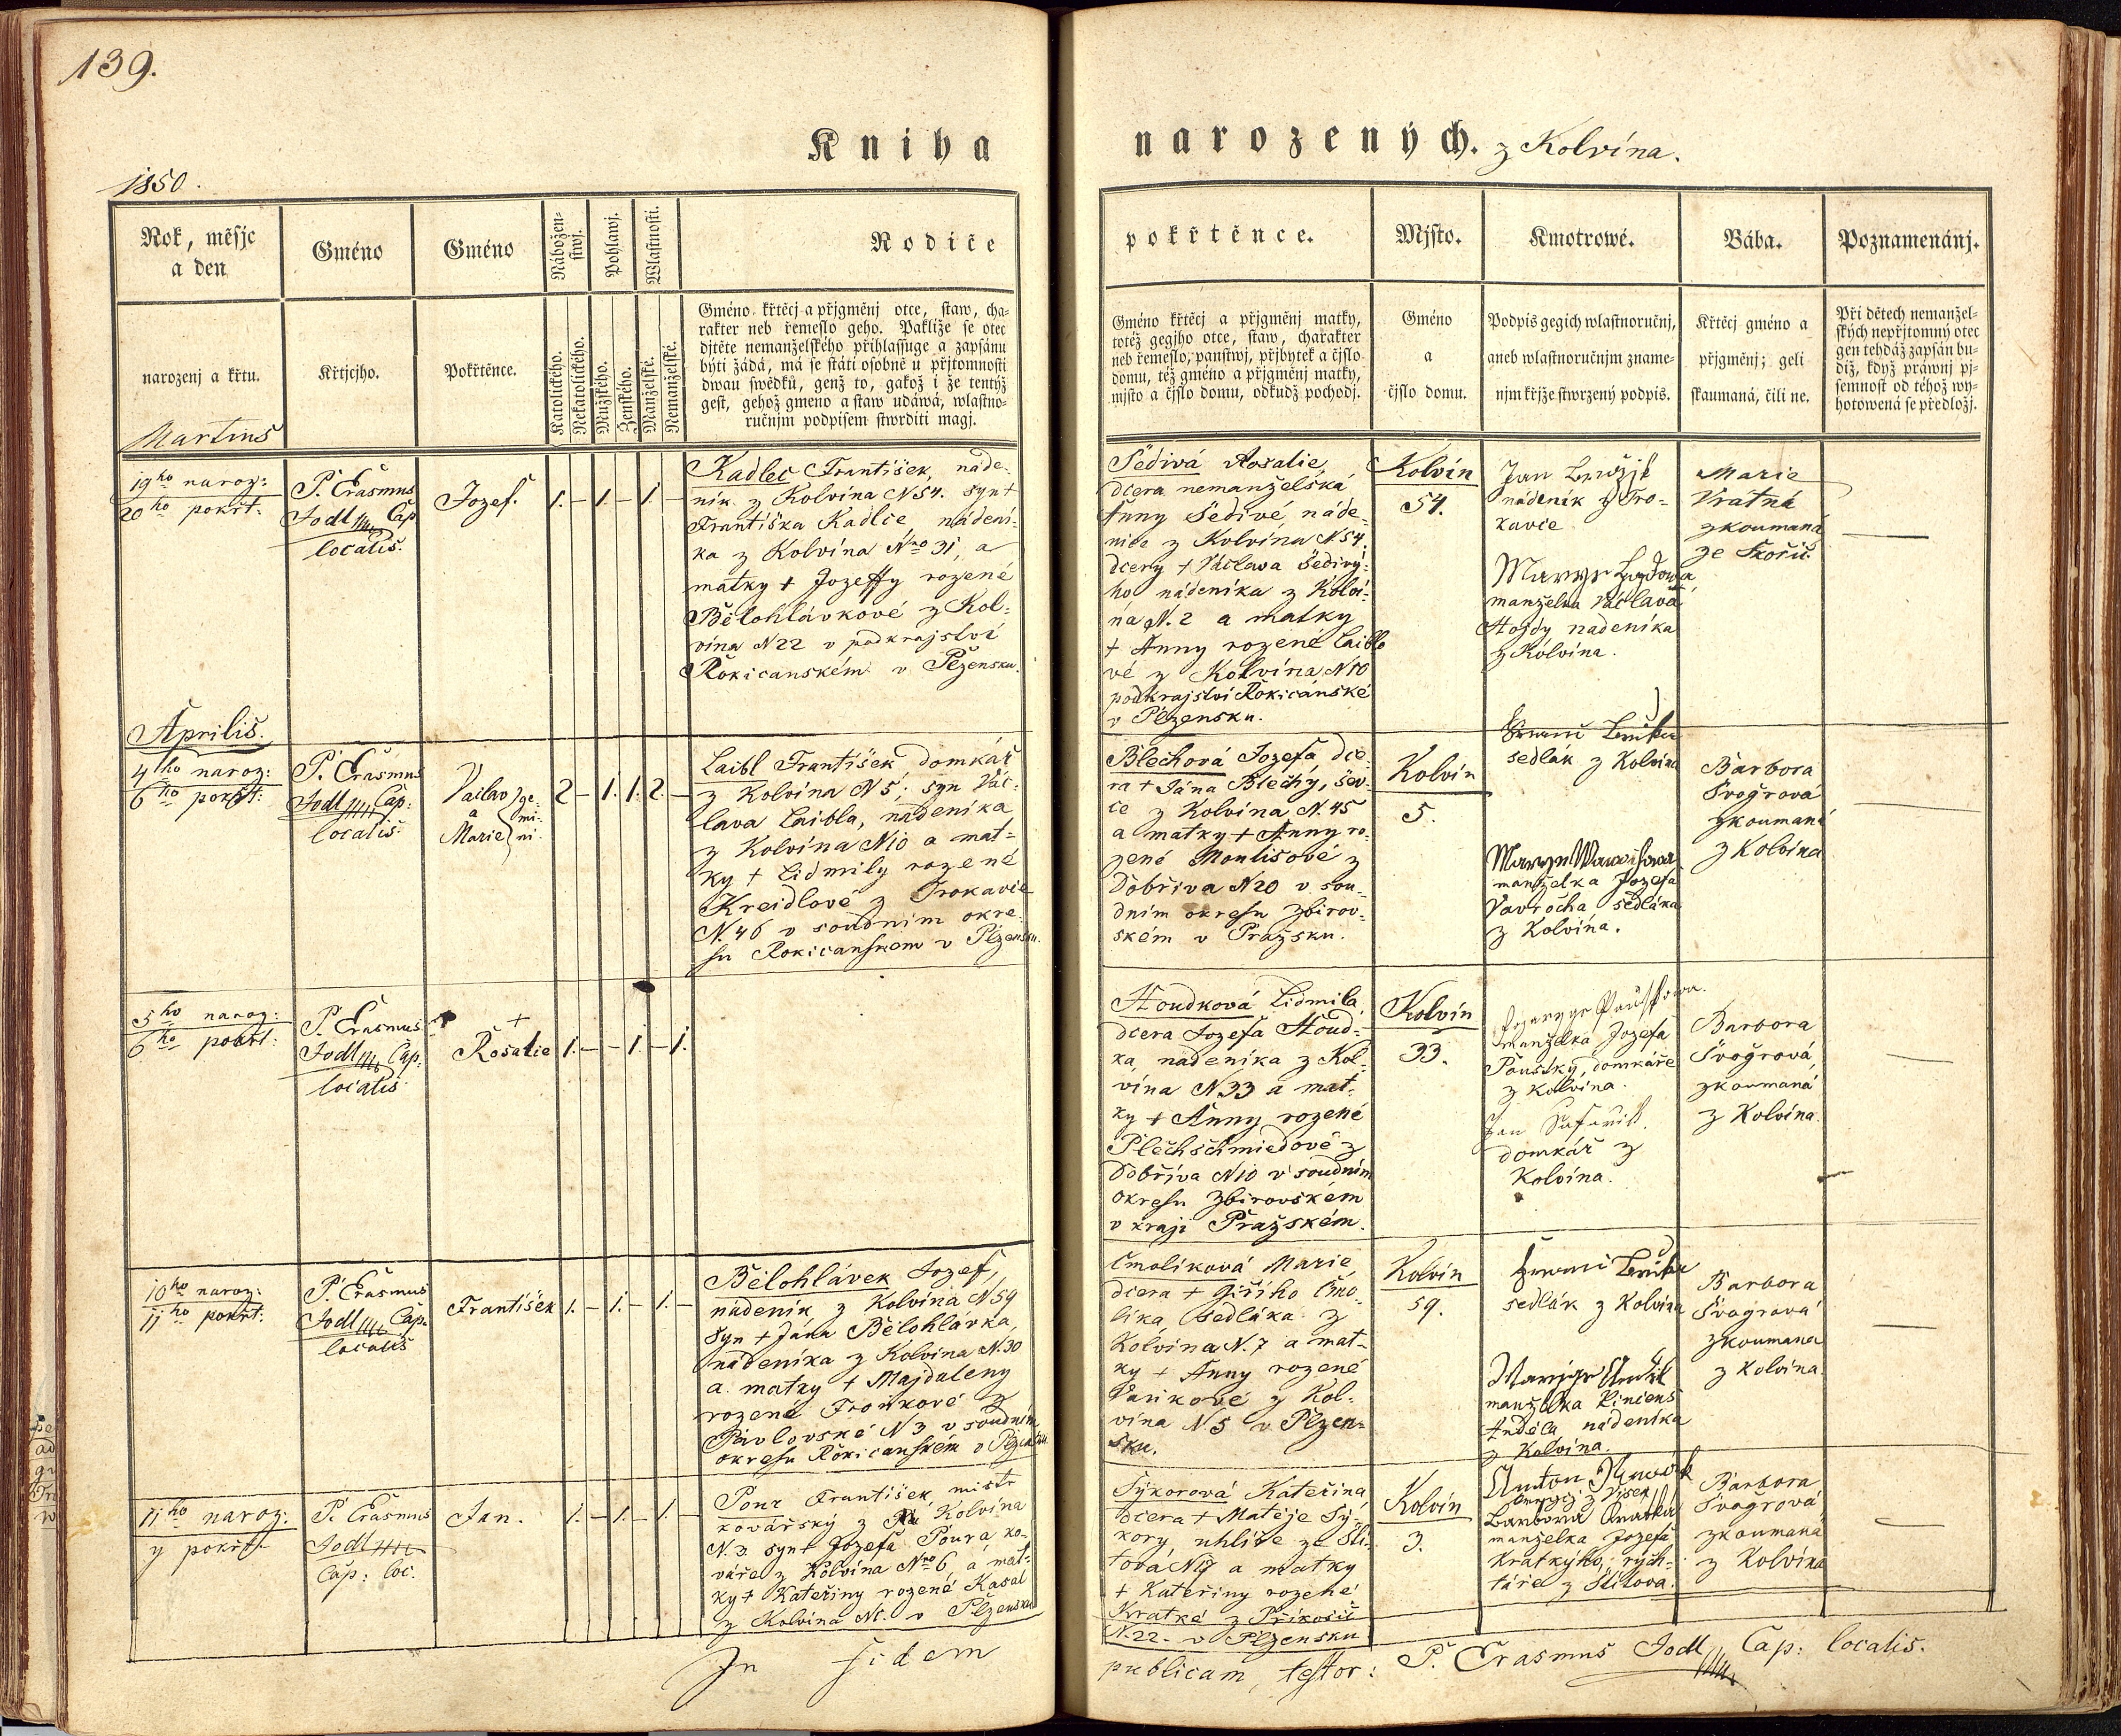 139.
Kniha narozených. z Kolvína.
1850.
Rok, měsjc
a den
narozenj a křtu.
Martius
Gméno
Křtjcjho.
Gméno
Pokřtěnce.
Nábožen-
stwj.
Katolického.
Nekatolického.
Pohlawj.
Mužského.
Ženského.
Wlastnosti.
Manželské.
Nemanželské.
Rodiče
Gméno křtěcj a přjgměnj otce, staw, cha-
rakter neb řemeslo geho. Pakliže se otec
djtěte nemanželského přihlassuge a zapsánu
býti žádá, má se státi osobně u přjtomnosti
dwau swědků, genž to, gakož i že tentýž
gest, gehož gméno a staw udáwá, wlastno-
ručnjm podpisem stwrditi magj.
pokřtěnce.
Gméno křtěcj a přjgměnj matky,
totéž gegjho otce, staw, charakter
neb řemeslo, panstwj, přjbytek a čjslo
domu, též gméno a přjgměnj matky,
mjsto a čjslo domu, odkudž pochodj.
Mjsto.
Gméno
a
čjslo domu.
Kmotrowé.
Podpis gegich wlastnoručnj,
aneb wlastnoručnjm zname-
njm křjže stwrzený podpis.
Bába.
Křtěcj gméno a
přjgměnj; geli
skaumaná, čili ne.
Poznamenánj.
Při dětech nemanžel-
ských nepřjtomný otec
gen tehdáž zapsán bu-
diž, když práwnj pj-
semnost od téhož wy-
hotowená se předložj.
19ho naroz:
20ho pokřt:
P. Erasmus
Jodl Cap
localis.
Jozef.
1. – 1. – 1.
Kadlec František, náde-
ník z Kolvína N 54. syn +
Františka Kadlce, nádení-
ka z Kolvína Nro 31, a
matky + Jozeffy rozené
Bělohlávkové z Kol-
vína N 22 v podkrajství
Rokicanském v Plzensku.
Šedivá Rosalie,
dcera nemanželská
Anny Šedivé, náde-
nice z Kolvína N 54.
dcery + Václava Šedivý-
ho nádeníka z Kolví-
na N. 2 a matky
+ Anny rozené Laiblo
vé z Kolvína N 10
podkrajství Rokicánské
v Plzensku.
Kolvín
54.
Jan
nádeník z Tro-
kavce
manželka Václava
Hojdy nádeníka
z Kolvína.
Marie
Vratná
zkoumaná
ze Skořic.
Aprilis.
4ho naroz:
6ho pokřt:
P. Erasmus
Jodl Cap:
localis.
Vaclav
a
Marie
ge-
mi-
ni.
2 – 1. 1. 2. –
Laibl František domkář
z Kolvína N 5, syn Vác-
lava Laibla, nádeníka
z Kolvína N 10 a mat-
ky + Lidmily rozené
Kreidlové z Trokavce
N. 46 v soudním okre-
su Rokicanskem v Plzensku.
Blechová Jozefa, dce-
ra + Jána Blechy, šev-
ce z Kolvína N. 45
a matky + Anny ro-
zené Montisové z
Dobřiva N 20 v sou-
dním okresu Zbirov-
ském v Pražsku.
Kolvín
5.
sedlák z Kolvína
manželka Jozefa
Vavrocha sedláka
z Kolvína.
Barbora
Švogrová
zkoumaná
z Kolvína
5ho naroz:
6ho pokřt:
P. Erasmus
Jodl Cap:
localis.
+
Rosalie
1. – – 1. – 1.
Houdková Lidmila
dcera Jozefa Houd-
ka, nádeníka z Kol-
vína N. 33 a mat-
ky + Anny rozené
Plechschmiedové z
Dobříva N 10 v soudním
okresu Zbirovském
v kraji Pražském.
Kolvín
33.
manželka Jozefa
Pouski, domkáře
z Kolvína.
Jan
domkář z
Kolvína.
Barbora
Švogrová,
zkoumaná
z Kolvína.
10ho naroz:
11ho pokřt:
P. Erasmus
Jodl Cap.
localis
František
1. – 1. – 1. –
Bělohlávek Jozef,
nádeník z Kolvína N 59
syn + Jána Bělohlávka,
nádeníka z Kolvína N. 30
a matky + Majdaleny
rozené Fronkové z
Pavlovské N 3 v soudním
okresu Rokicanském v Plzensku
Čmolíková Marie
dcera + Giřího Čmo-
líka, sedláka z
Kolvína N. 7 a mat-
ky + Anny rozené
Vaňkové z Kol-
vína N. 5 v Plzen-
sku.
Kolvín
59.
sedlák z Kolvína
manželka Vincens
Anděla nádeníka
z Kolvína.
Barbora
Švogrová
zkoumana
z Kolvína.
11ho naroz:
y pokřt:
P. Erasmus
Jodl
Cap: loc.
Jan.
1. – 1. – 1. –
Pour František, mistr
kovářský z Kolvína
N. 3. syn + Jozefa Poura ko-
váře z Kolvína Nro 6, a mat-
ky + Kateřiny rozené Kasal
z Kolvína N1. v Plzensku
Sýkorová Kateřina
dcera + Matěje Sý-
kory, uhlíře ze Ští-
tova N 17 a matky
+ Kateřiny rozené
Kratké z Příkosic
N. 22. v Plzensku
Kolvín
3.
Anton
Barbora
manželka Jozefa
Kratkýho, rých-
táře z Štítova.
Barbora
Švogrová
zkoumaná
z Kolvína
In fidem publicam testor: P. Erasmus Jodl Cap: localis.